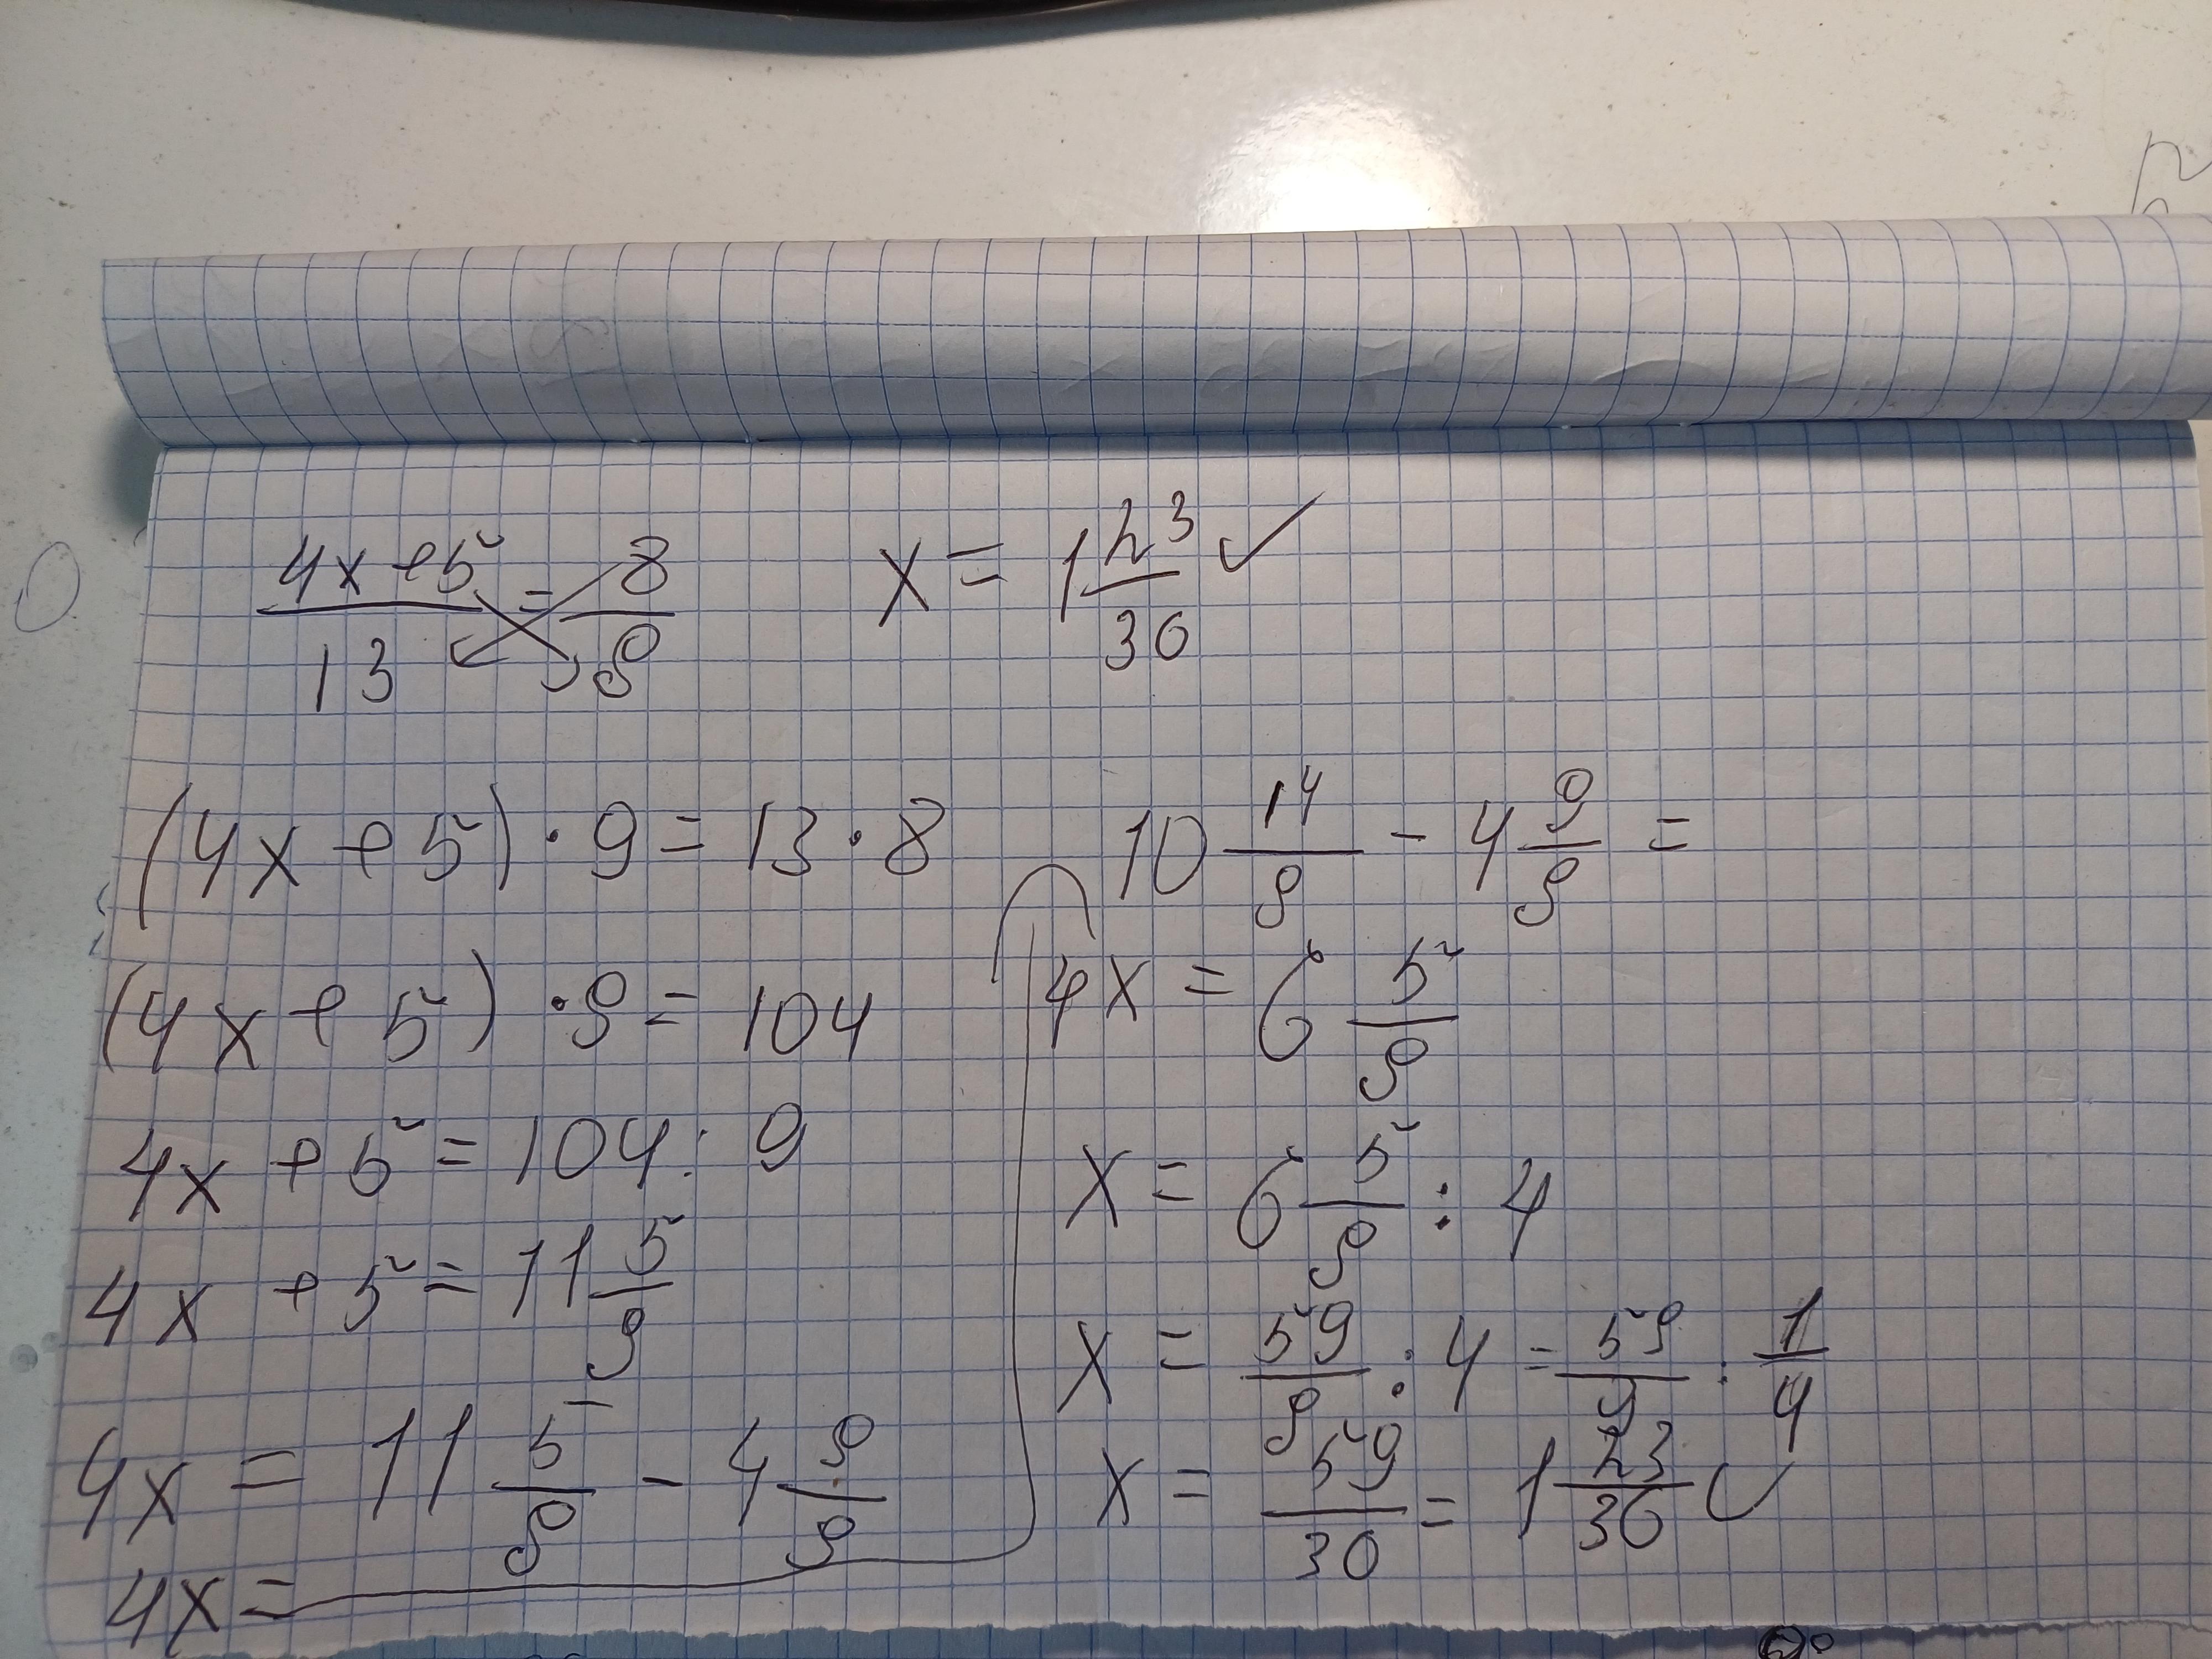 (4x + 5)/13 = 8/9
x = 1 23/36 ✓
(4x + 5) · 9 = 13 · 8
(4x + 5) · 9 = 104
4x + 5 = 104 : 9
4x + 5 = 11 5/9
4x = 11 5/9 - 4 9/9
4x =
10 14/9 - 4 9/9 =
4x = 6 5/9
x = 6 5/9 : 4
x = 59/9 : 4 = 59/9 · 1/4
x = 59/36 = 1 23/36 ✓